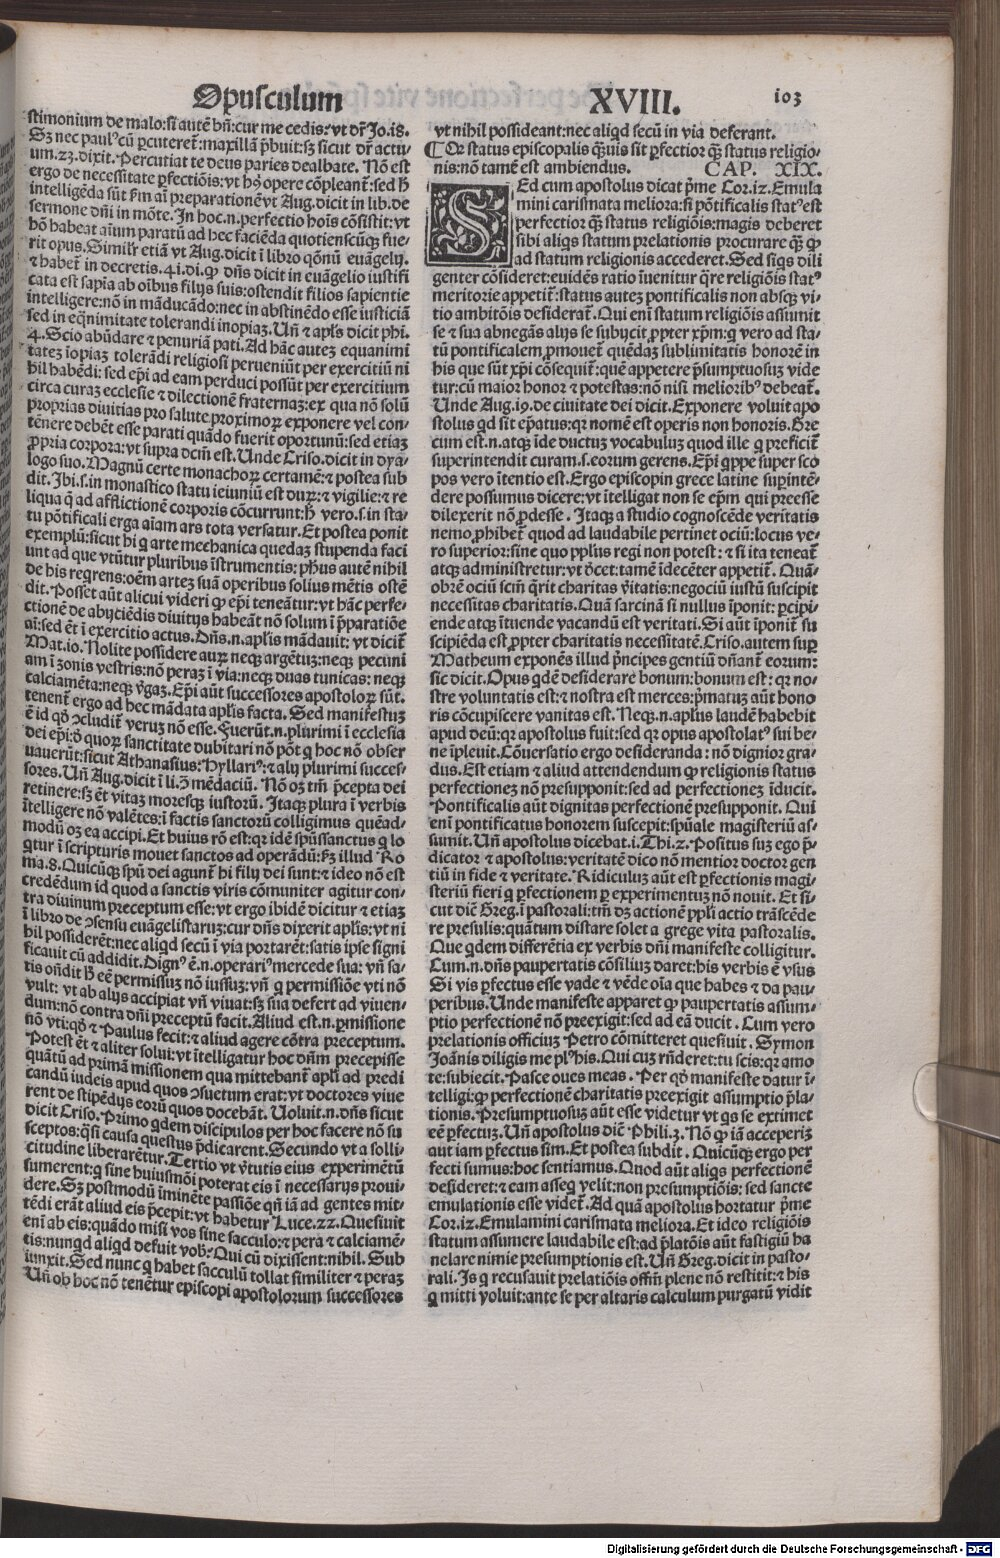 Opusculum
XVIII.
103
stimonium de malo: si autē bñ: cur me cedis: vt dr̄ Jo.18.
Sꝫ nec paulꝰ cū ꝑcuteret̄: maxillā p̄buit: sꝫ sicut dr̄ actu-
um.23. dixit. Percutiat te deus paries dealbate. Nō est
ergo de necessitate ꝑfectiōis: vt hꝫ opere cōpleant̄: sed h̄
intelligēda sūt ẜm aī preparationē vt Aug. dicit in lib. de
sermone dn̄i in mōte. In hoc.n. perfectio hoīs cōsistit: vt
hō habeat aīum paratū ad hec faciēda quotienscūqꝫ fue-
rit opus. Simil'r etiā vt Aug. dicit ī libro qōnū euāgelij.
⁊ habet̄ in decretis.41.di. ꝙ dn̄s dicit in euāgelio iustifi
cata est sapīa ab oībus filijs suis: ostendit filios sapientie
intelligere: nō in māducādo: nec in abstinēdo esse iusticiā
sed in eq̄nimitate tolerandi inopiaꝫ. Vn̄ ⁊ apl's dicit phi.
4. Scio abūdare ⁊ penuriā pati. Ad hāc auteꝫ equanimi
tateꝫ īopiaꝫ tolerādi religiosi perueniūt per exercitiū ni
hil habēdi: sed ep̄i ad eam perduci possūt per exercitium
circa curaꝫ ecclesie ⁊ dilectionē fraternaꝫ: ex qua nō solū
proprias diuitias pro salute proximoꝝ exponere vel con-
tēnere debēt esse parati quādo fuerit oportunū: sed etiaꝫ
ꝓpria corpora: vt supra dcm̄ est. Unde Criso. dicit in dya-
logo suo. Magnū certe monachoꝝ certamē: ⁊ postea sub
dit. Ibi.s. in monastico statu ieiuniū est duꝝ: ⁊ vigilie: ⁊ re
liqua q̄ ad afflictionē corporis cōcurrunt: h̄ vero.s. in sta-
tu pōtificali erga aīam ars tota versatur. Et postea ponit
exemplū: sicut hi q̄ arte mechanica quedaꝫ stupenda faci
unt ad que vtūtur pluribus īstrumentis: ph̄us autē nihil
de his regrens: oēm arteꝫ suā operibus solius mētis ostē
dit. Posset aūt alicui videri ꝙ ep̄i teneātur: vt hāc perfe-
ctionē de abijciēdis diuitijs habeāt nō solum ī p̄paratiōe
aī: sed ēt ī exercitio actus. Dn̄s.n. apl'is mādauit: vt dicit̄
Mat.10. Nolite possidere auꝝ neqꝫ argētuꝫ: neqꝫ pecuni
am ī zonis vestris: nō peraꝫ ī via: neqꝫ duas tunicas: neqꝫ
calciamēta: neqꝫ v̄gaꝫ. Ep̄i aūt successores apostoloꝝ sūt.
tenent̄ ergo ad hec mādata apl'is facta. Sed manifestuꝫ
ē id qd̄ ↄcludit̄ veruꝫ nō esse. Fuerūt.n. plurimi ī ecclesia
dei ep̄i: d̄ quoꝝ sanctitate dubitari nō pōt q̄ hoc nō obser
uauerūt: sicut Athanasius: Hyllariꝰ: ⁊ alij plurimi succes-
sores. Un̄ Aug. dicit ī li. ↄ̄ mēdaciū. Nō oꝫ tm̄ p̄cepta dei
retinere: sꝫ ēt vitaꝫ moresqꝫ iustorū. Itaqꝫ plura ī verbis
ītelligere nō valētes: ī factis sanctorū colligimus quēad-
modū oꝫ ea accipi. Et huius rō est: qꝛ idē sp̄ussanctus q̄ lo
q̄tur ī scripturis mouet sanctos ad operādū: sꝫ illud Ro
ma.8. Quicūqꝫ sp̄ū dei agunt̄ hi filij dei sunt: ⁊ ideo nō est
credēdum id quod a sanctis viris cōmuniter agitur con-
tra diuinum preceptum esse: vt ergo ibidē dicitur ⁊ etiaꝫ
ī libro de ↄsensu euāgelistaruꝫ: cur dn̄s dixerit apl'is: vt ni
hil possiderēt: nec aliqd secū ī via portarēt: satis ipse signi
ficauit cū addidit. Dignꝰ ē.n. operariꝰ mercede sua: vn̄ sa-
tis on̄dit h̄ eē permissuꝫ nō iussuꝫ: vn̄ q̄ permissiōe vti nō
vult: vt ab alijs accipiat vn̄ viuat: sꝫ sua defert ad viuen-
dum: nō contra dn̄i preceptū facit. Aliud est.n. ꝑmissione
nō vti: qd̄ ⁊ Paulus fecit: ⁊ aliud agere cōtra preceptum.
Potest ēt ⁊ aliter solui: vt ītelligatur hoc dn̄m precepisse
quātū ad primā missionem qua mittebant̄ apl'i ad predi
candū iudeis apud quos ↄsuetum erat: vt doctores viue
rent de stipēdijs eorū quos docebāt. Uoluit.n. dn̄s sicut
dicit Criso. Primo q̄dem discipulos per hoc facere nō su
sceptos: q̄si causa questus p̄dicarent. Secundo vt a solli-
citudine liberarētur. Tertio vt v̄tutis eius experimētū
sumerent: q̄ sine huiusmōi poterat eis ī necessarijs proui-
dere. Sꝫ postmodū iminēte passiōe qn̄ iā ad gentes mit-
tēdi erāt aliud eis p̄cepit: vt habetur Luce.22. Quesiuit
enī ab eis: quādo misi vos sine sacculo: ⁊ pera ⁊ calciamē-
tis: nunqd aliqd defuit vobꝭ? Qui cū dixissent: nihil. Sub
iunxit. Sed nunc q̄ habet sacculū tollat similiter ⁊ peraꝫ
Un̄ ob hoc nō tenētur episcopi apostolorum successores
vt nihil possideant: nec aliqd secū in via deferant.
¶ Qr status episcopalis q̄uis sit ꝑfectior q̄ꝫ status religio-
nis: nō tamē est ambiendus. CAP. XIX.
SEd cum apostolus dicat p̄me Cor.12. Emula
mini carismata meliora: si pōtificalis statꝰ est
perfectior q̄ꝫ status religiōis: magis deberet
sibi aliqs statum prelationis procurare q̄ꝫ ꝙ
ad statum religionis accederet. Sed siqs dili
genter cōsideret: euidēs ratio īuenitur q̄re religiōis statꝰ
meritorie appetit̄: status auteꝫ pontificalis non absqꝫ vi-
tio ambitōis desiderat̄. Qui enī statum religiōis assumit
se ⁊ sua abnegās alijs se subijcit ꝓpter xp̄m: q̄ vero ad sta-
tū pontificalem ꝓmouet̄ quēdaꝫ sublimitatis honorē in
his que sūt xp̄i cōsequit̄: quē appetere p̄sumptuosuꝫ vide
tur: cū maior honor ⁊ potestas: nō nisi melioribꝰ debeat̄.
Unde Aug.19. de ciuitate dei dicit. Exponere voluit apo
stolus qd sit ep̄atus: qꝛ nomē est operis non honoris. Gre
cum est.n. atqꝫ īde ductuꝫ vocabuluꝫ quod ille q̄ preficit̄
superintendit curam.s. eorum gerens. Ep̄i q̄ppe super sco
pos vero ītentio est. Ergo episcopin grece latine suꝑintē-
dere possumus dicere: vt ītelligat non se ep̄m qui preesse
dilexerit nō ꝓdesse. Itaqꝫ a studio cognoscēde veritatis
nemo ꝓhibet̄ quod ad laudabile pertinet ociū: locus ve-
ro superior: sine quo ppl'us regi non potest: ⁊ si ita teneat̄
atqꝫ administretur: vt d̄cet: tamē īdecēter appetit̄. Quā-
obrē ociū scm̄ q̄rit charitas v̄itatis: negociū iustū suscipit
necessitas charitatis. Quā sarcinā si nullus īponit: ꝑcipi-
ende atqꝫ ītuende vacandū est veritati. Si aūt īponit̄ su
scipiēda est ꝓpter charitatis necessitatē. Criso. autem suꝑ
Matheum exponēs illud p̄ncipes gentiū dn̄ant̄ eorum:
sic dicit. Opus q̄dē desiderare bonum: bonum est: qꝛ no-
stre voluntatis est: ⁊ nostra est merces: p̄matuꝫ aūt hono
ris cōcupiscere vanitas est. Neqꝫ.n. apl'us laudē habebit
apud deū: qꝛ apostolus fuit: sed qꝛ opus apostolatꝰ sui be-
ne īpleuit. Cōuersatio ergo desideranda: nō dignior gra-
dus. Est etiam ⁊ aliud attendendum ꝙ religionis status
perfectioneꝫ nō presupponit: sed ad perfectioneꝫ īducit.
Pontificalis aūt dignitas perfectionē presupponit. Qui
enī pontificatus honorem suscepit: sp̄uāle magisteriū as-
sumit. Un̄ apostolus dicebat.1. Thi.2. Positus suꝫ ego p̄-
dicator ⁊ apostolus: veritatē dico nō mentior doctor gen
tiū in fide ⁊ veritate. Ridiculuꝫ aūt est ꝑfectionis magi-
steriū fieri q̄ ꝑfectionem ꝑ experimentuꝫ nō nouit. Et si-
cut dic̄ Greg. ī pastorali: tm̄ dꝫ actionē ppl'i actio trāscēde
re presulis: quātum distare solet a grege vita pastoralis.
Que q̄dem differētia ex verbis dn̄i manifeste colligitur.
Cum.n. dn̄s paupertatis cōsiliuꝫ daret: his verbis ē vsus
Si vis ꝑfectus esse vade ⁊ vēde oīa que habes ⁊ da pau-
peribus. Unde manifeste apparet ꝙ paupertatis assum-
ptio perfectionē nō preexigit: sed ad eā ducit. Cum vero
prelationis officiuꝫ Petro cōmitteret quesiuit. Symon
Joānis diligis me pl'his. Qui cuꝫ rn̄deret: tu scis: qꝛ amo
te: subiecit. Pasce oues meas. Per qd̄ manifeste datur ī-
telligi: ꝙ perfectionē charitatis preexigit assumptio p̄la-
tionis. Presumptuosuꝫ aūt esse videtur vt qs se extimet
eē ꝑfectuꝫ. Un̄ apostolus dic̄ Phili.3. Nō ꝙ iā acceperiꝫ
aut iam ꝑfectus sim. Et postea subdit. Quicūqꝫ ergo per
fecti sumus: hoc sentiamus. Quod aūt aliqs perfectionē
desideret: ⁊ eam asseq̄ velit: non presumptiōis: sed sancte
emulationis esse videt̄. Ad quā apostolus hortatur p̄me
Cor.12. Emulamini carismata meliora. Et ideo religiōis
statum assumere laudabile est: ad p̄latōis aūt fastigiū ha
nelare nimie presumptionis est. Un̄ Greg. dicit in pasto-
rali. Is q̄ recusauit prelatiōis offm̄ plene nō restitit: ⁊ his
q̄ mitti voluit: ante se per altaris calculum purgatū vidit
Digitalisierung gefördert durch die Deutsche Forschungsgemeinschaft - DFG